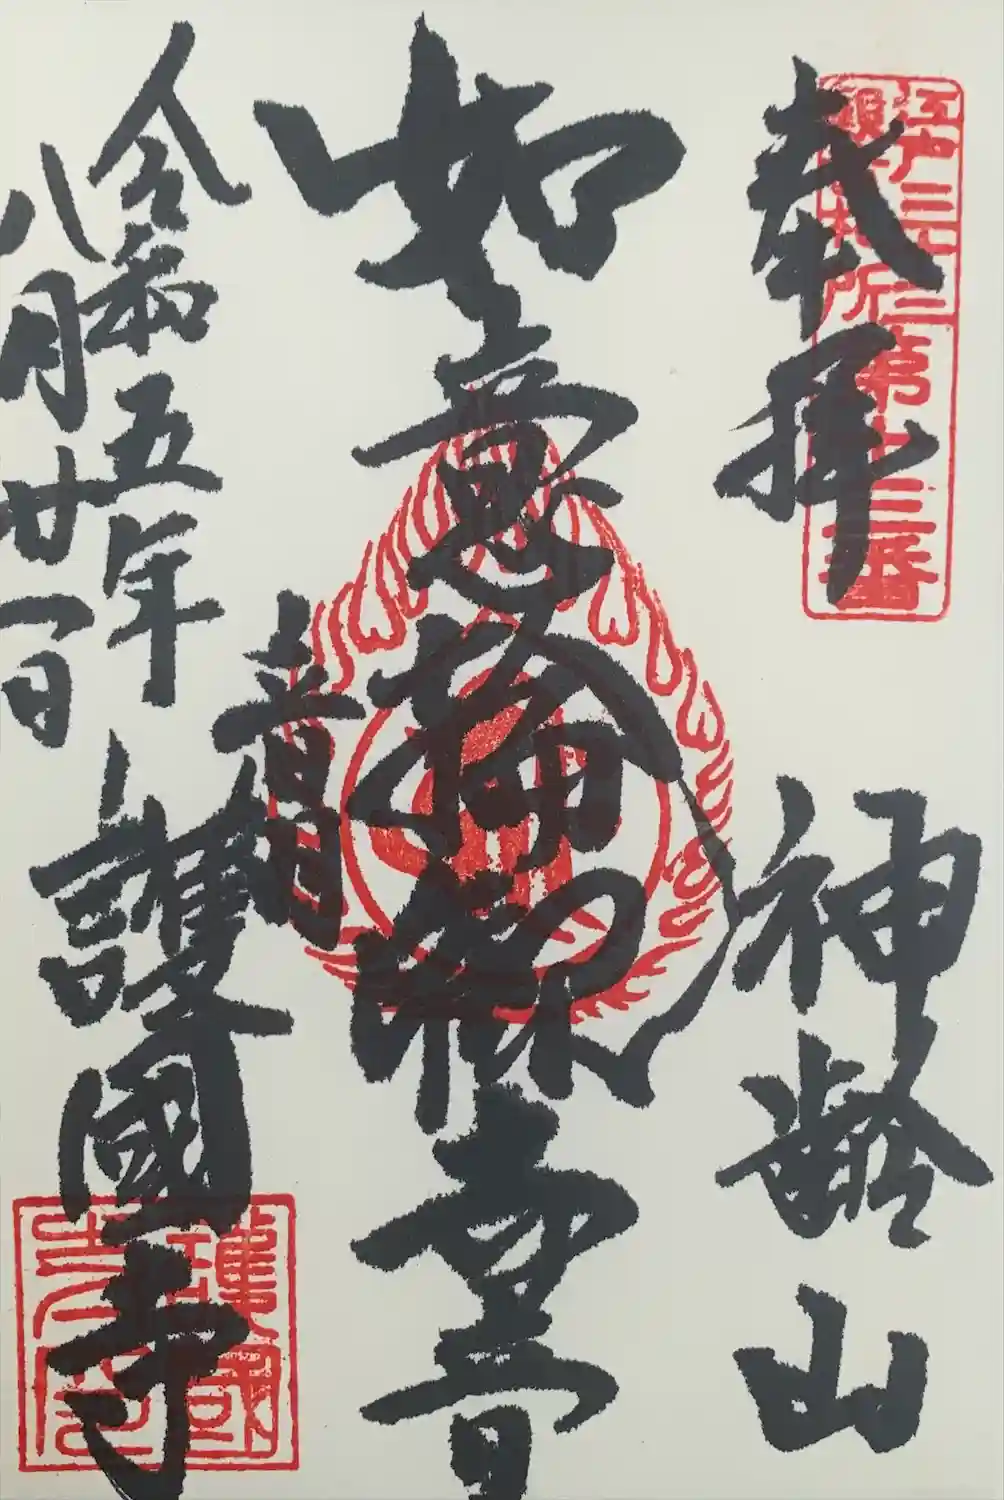 奉拝
江戸三十三
観音札所
第十三番
神齢山
如意輪観世音
音羽
護國寺
令和五年
八月廿一日
護國